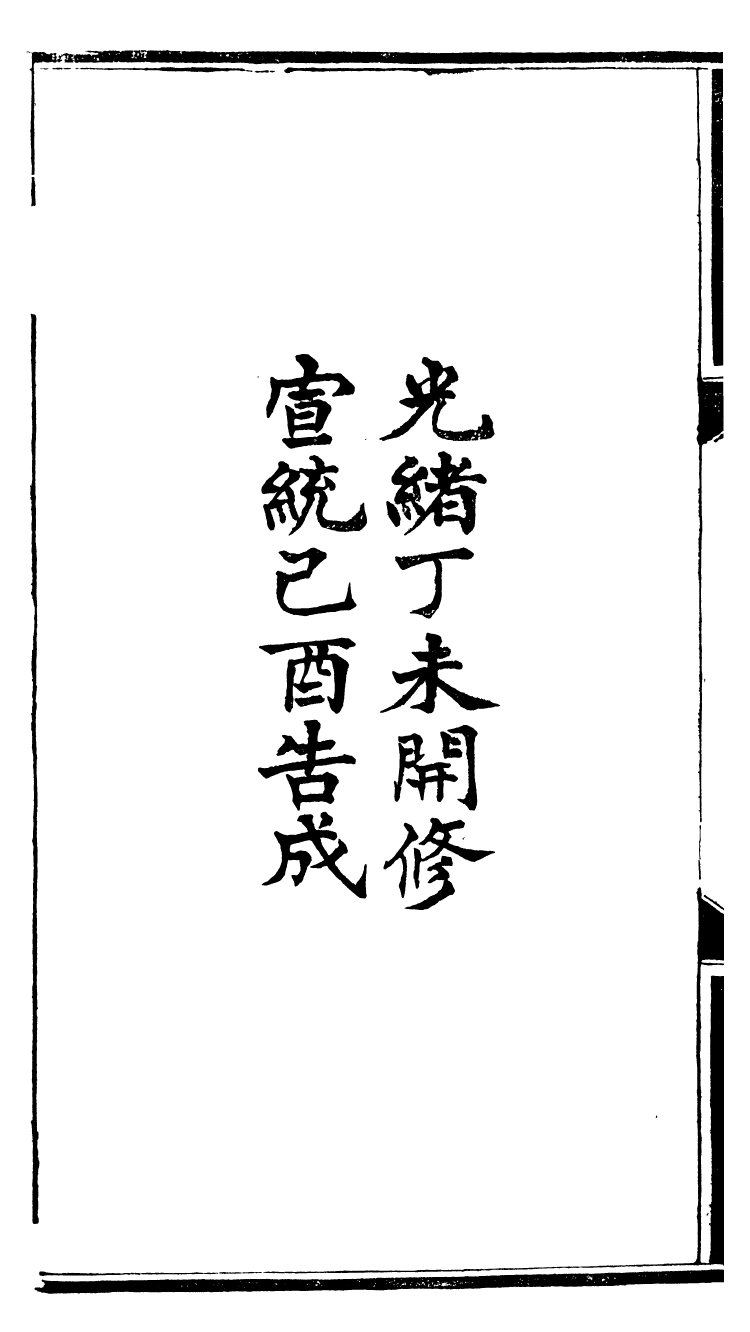 光緒丁未開修
宣統己酉告成